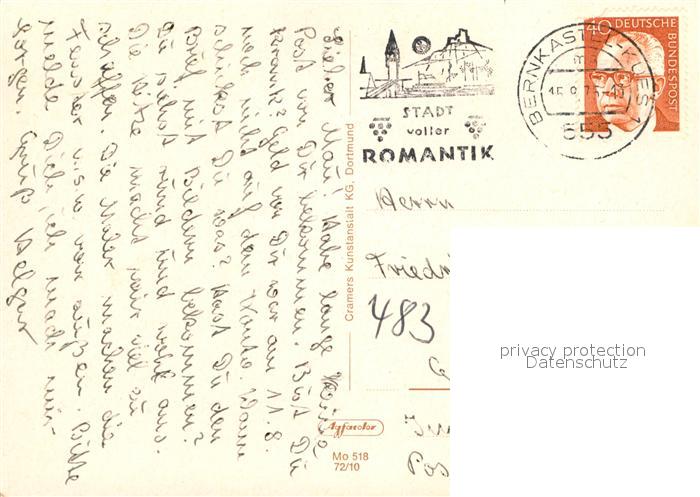 Lieber Max! Habe lange keine
Post von Dir bekommen. Bist Du
krank? Geld von Dir war am 11.8.
noch nicht auf dem Konto. Wann
schickst Du was? Hast Du den
Brief mit Bildern bekommen?
Du siehst rund und wohl aus.
Die Hitze macht mir viel zu
schaffen. Die Maler machen die
Fenster u.s.w. von außen. Bitte
melde Dich, ich mach mir
Sorgen. Gruß Helgar
Cramers Kunstanstalt KG, Dortmund
STADT
voller
ROMANTIK
BERNKASTEL-KUES 1
m
15.8.75
553
40 DEUTSCHE
BUNDESPOST
Herrn
Friedri
483
Agfacolor
Mo 518
72/10
Pos
privacy protection
Datenschutz